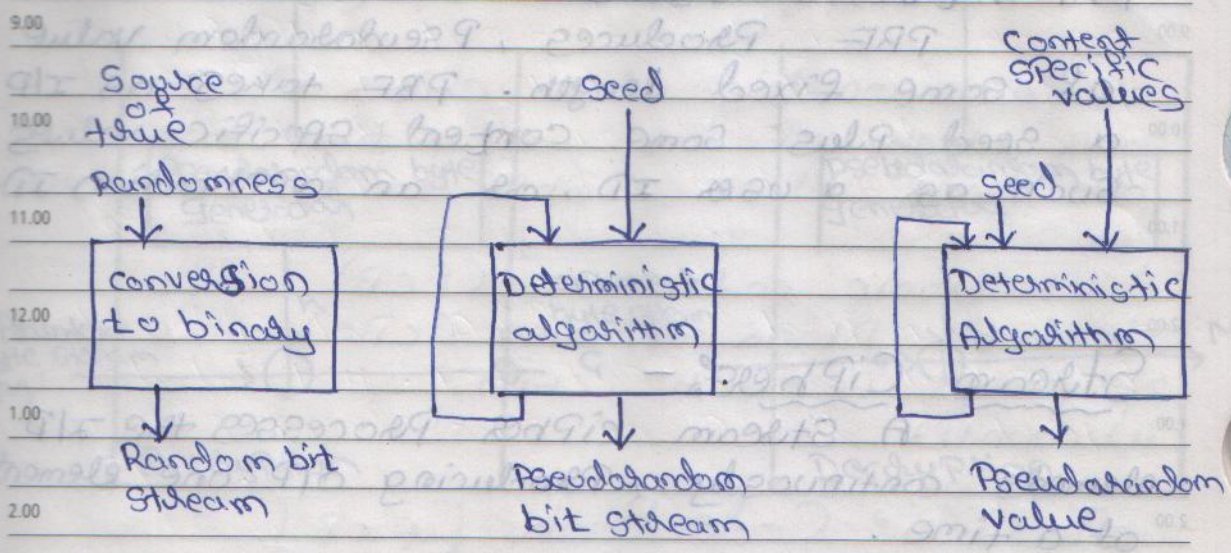 9.00
10.00
11.00
12.00
1.00
2.00
Source
of
true
Randomness
conversion
to binary
Random bit
stream
Seed
Deterministic
algorithm
Pseudorandom
bit stream
Content
specific
values
Seed
Deterministic
Algorithm
Pseudorandom
value